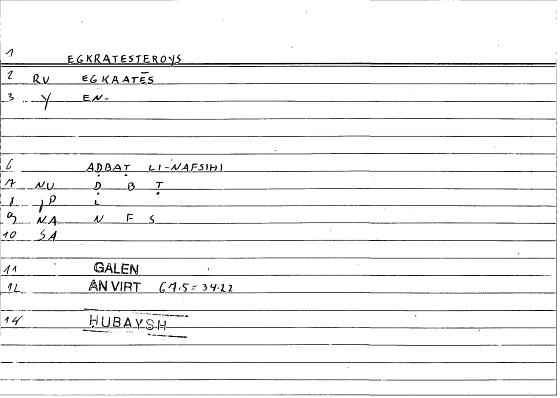 1 EGKRATESTEROYS
2 RV EGKRATĒS
3 Y EN-
6 AḌBAṬ LI-NAFSIHI
7 NU Ḍ B Ṭ
8 JP L
9 NA N F S
10 SA
11 GALEN
12 AN VIRT 67.5 = 34.22
14 HUBAYSH